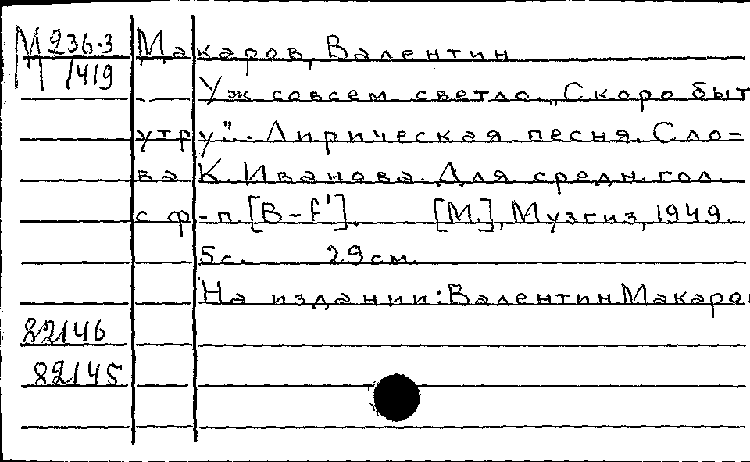 М 236·3 Макаров, Валентин
М /419
Уж совсем светло. „Скоро быт
утру"... Лирическая песня. Сло-
ва К. Иванова. Для средн. гол.
с ф-п. [B-f¹]. [М.], Музгиз, 1949.
5с. 29см.
На издании: Валентин Макаро
82146
82145